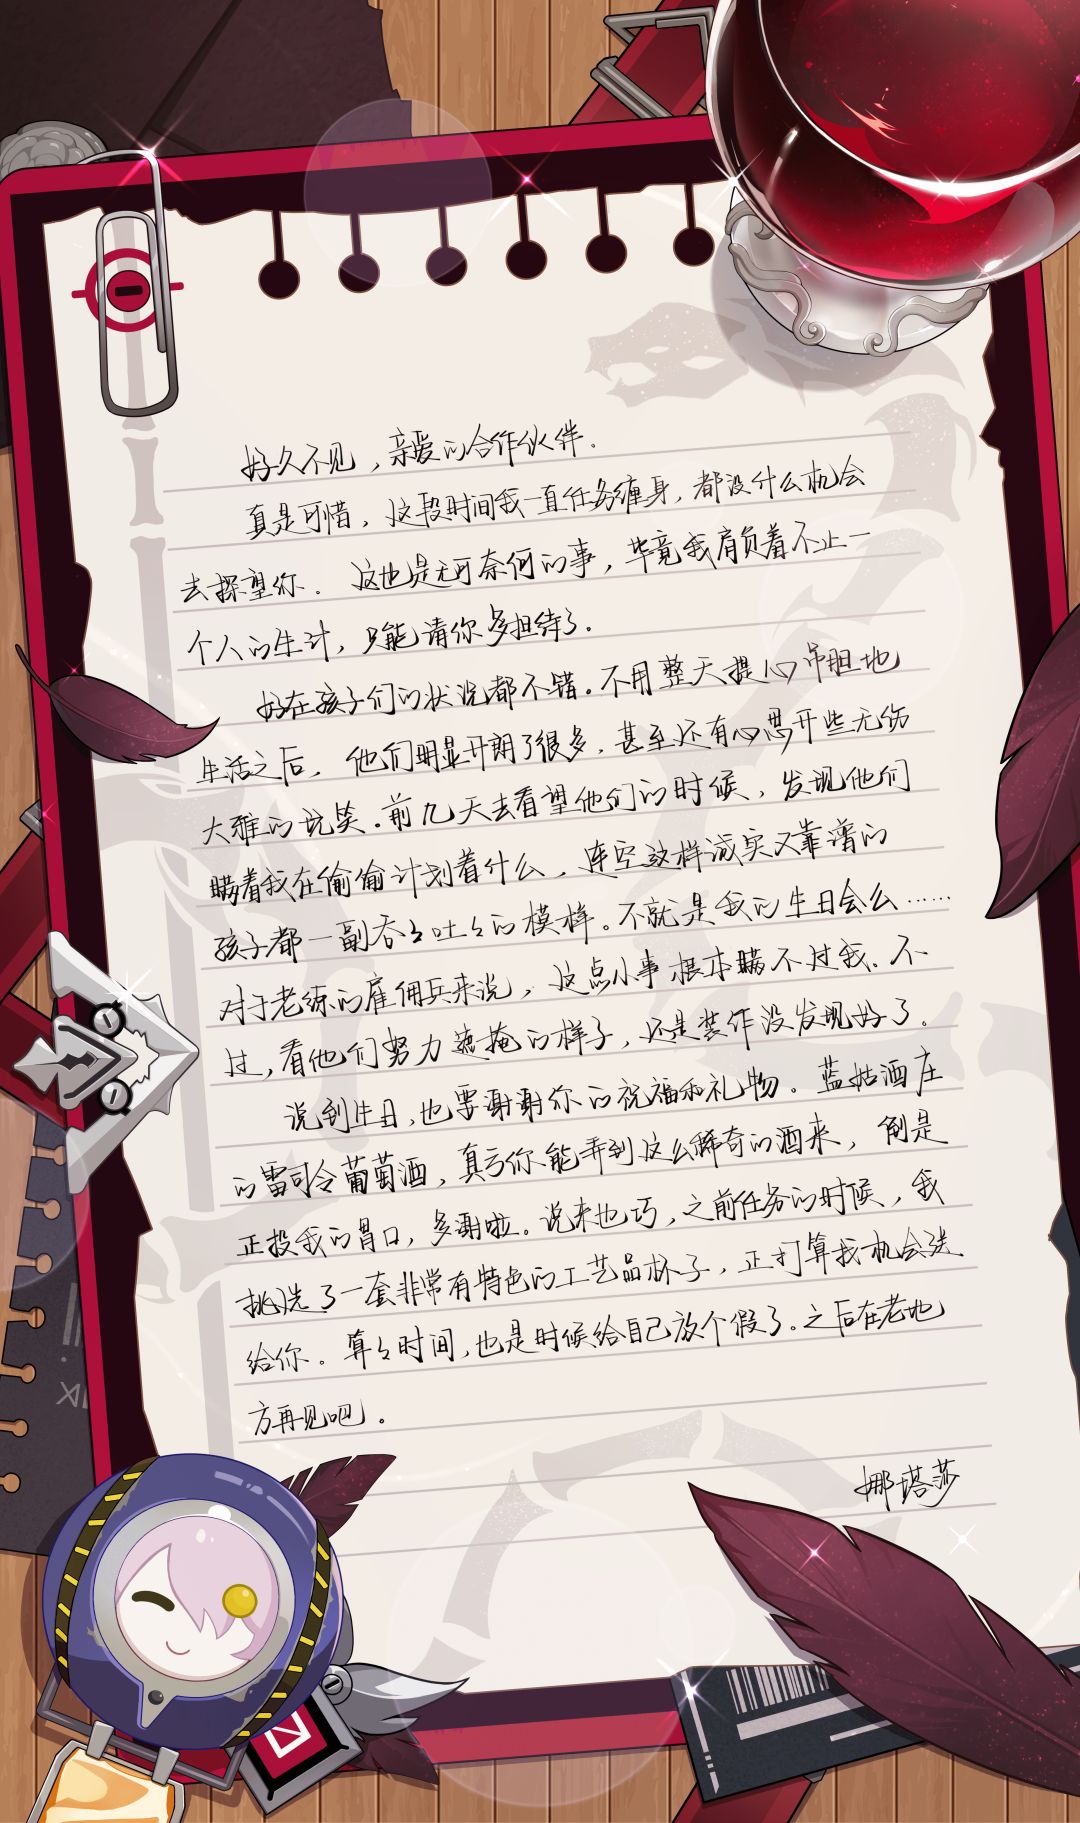 好久不见，亲爱的合作伙伴.
真是可惜，这段时间我一直任务缠身，都没什么机会
去探望你. 这也是无可奈何的事，毕竟我肩负着不止一
个人的生计，只能请你多担待了.
好在孩子们的状况都不错.不用整天提心吊胆地
生活之后，他们明显开朗了很多，甚至还有心思开些无伤
大雅的玩笑.前几天去看望他们的时候，发现他们
瞒着我在偷偷计划着什么，连空这样诚实又靠谱的
孩子都一副吞々吐々的模样。不就是我的生日会么……
对于老练的雇佣兵来说，这点小事根本瞒不过我.不
过，看他们努力遮掩的样子，还是装作没发现好了。
说到生日,也要谢谢你的祝福和礼物。蓝姑酒庄
的雷司令葡萄酒，真亏你能弄到这么稀奇的酒来，倒是
正投我的胃口，多谢啦。说来也巧，之前任务的时候，我
挑选了一套非常有特色的工艺品杯子，正打算找机会送
给你。算々时间,也是时候给自己放个假了.之后在老地
方再见吧。
娜塔莎